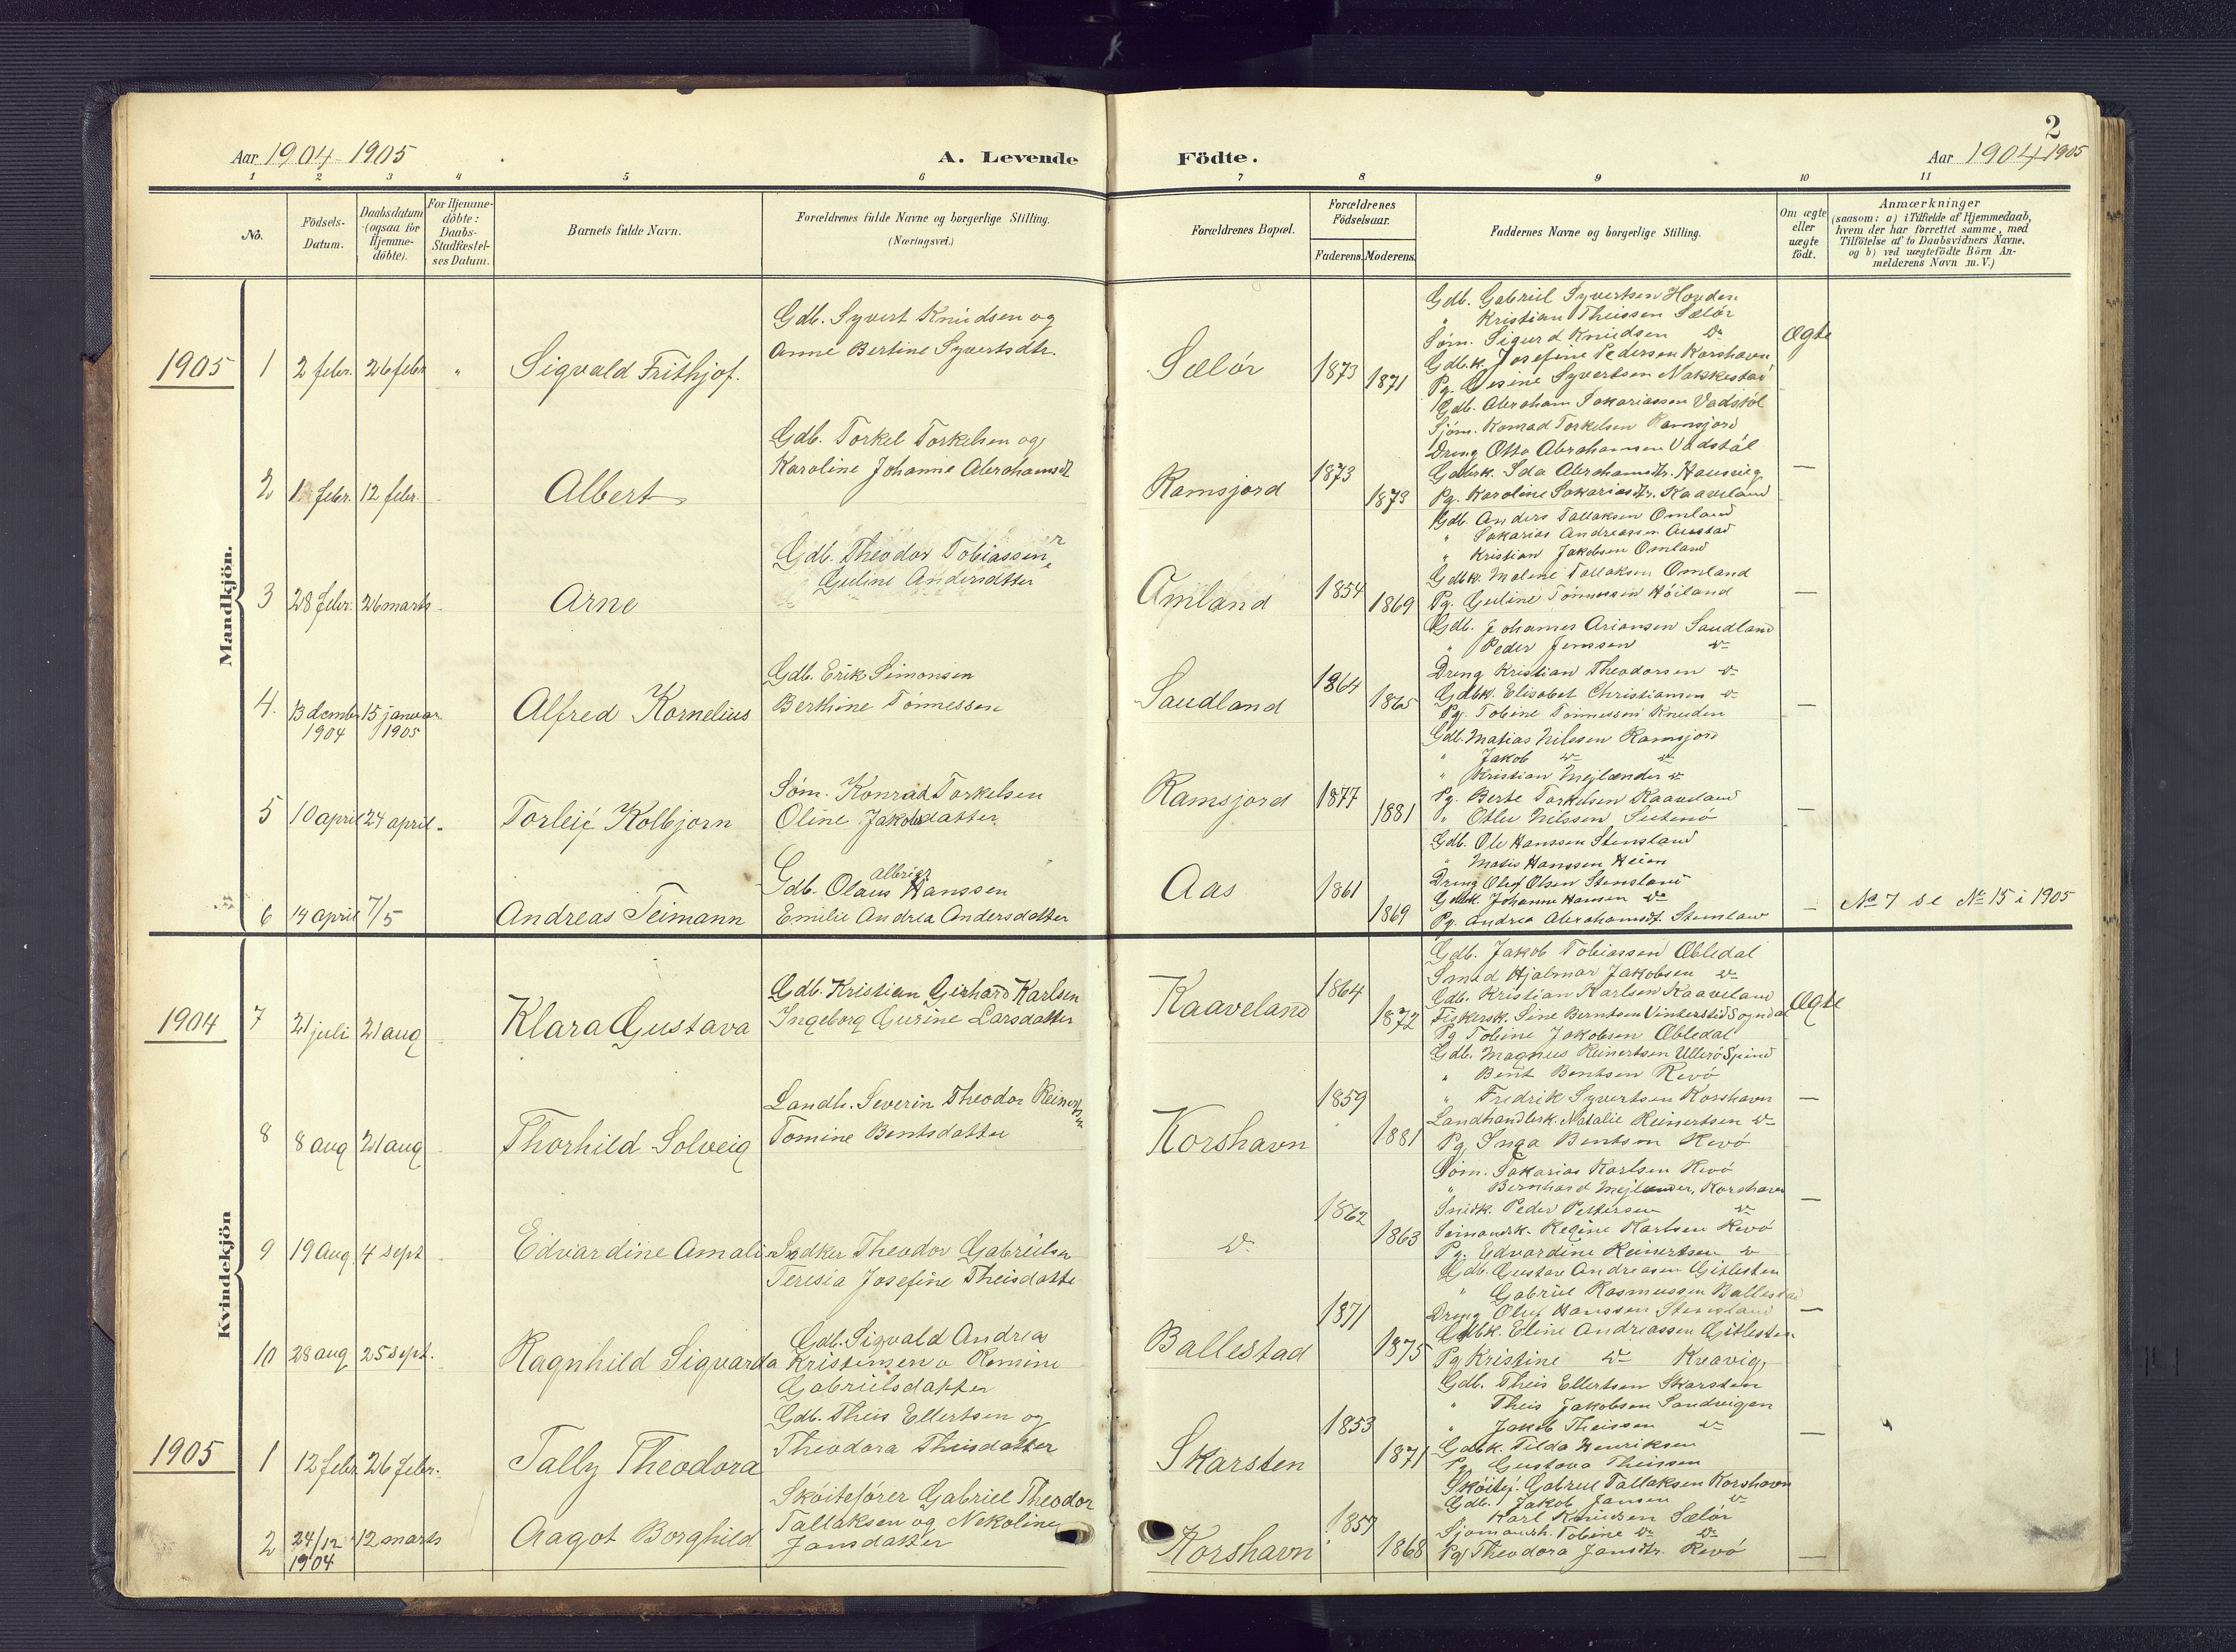 2
Aar 1904-1905
A. Levende Födte.
Aar 1904 1905
1 2 3 4 5 6 7 8 9 10 11
No.
Födsels-Datum.
Daabsdatum (ogsaa for Hjemme-döbte).
For Hjemme-döbte: Daabs-Stadfæstel-ses Datum.
Barnets fulde Navn.
Forældrenes fulde Navne og borgerlige Stilling.
(Næringsvei.)
Forældrenes Bopæl.
Forældrenes Födselsaar.
Faderens. Moderens.
Faddernes Navne og borgerlige Stilling.
Om ægte eller uægte födt.
Anmærkninger
(saasom: a) i Tilfælde af Hjemmedaab, hvem der har forrettet samme, med Tilföielse af to Daabsvidners Navne, og b) ved uægtefödte Börn An-melderens Navn m. V.)
Mandkjön.
1905
1 2 febr. 26 febr " Sigvald Frithjof.
Gdb. Syvert Knudsen og
Anne Bertine Syvertsdtr.
Sælör 1873 1871
Gdb. Gabriel Syvertsen Houden
" Kristian Theissen Sælör
Søm. Sigurd Knudsen do
Gdbk. Josefine Pedersen Korshavn
Pg. Gesine Syvertsen Nakkestad
Ægte
2 1 febr. 12 febr. Albert
Gdb. Torkel Torkelsen og
Karoline Johanne Abrahamsdt
Ramsjord 1873 1873
Gdb. Abraham Sakariassen Vadstöl
Sjöm. Konrad Torkelsen Ramsjord
Dreng Otto Abrahamsen Vadstöl
Gdbrk. Ida Abrahamsdtr. Hausvig
Pg. Karoline Sakariasdtr. Kaaveland
—
3 28 febr. 26 marts Arne
Gdb. Theodor Tobiassen
Guline Andersdatter
Omland 1854 1869
Gdb. Anders Tallaksen Omland
" Sakarias Andreassen Austad
" Kristian Jakobsen Omland
Gdbk. Malene Tallaksen Omland
Pg. Guline Tönnessen Höiland
—
4. 13 dcmbr 1904 15 januar 1905 Alfred Kornelius
Gdb. Erik Simonsen
Berthine Tönnessen
Saudland 1864 1865
Gdb. Johannes Ariansen Saudland
" Peder Jenssen do
Dreng Kristian Theodorsen do
Gdbk. Elisabet Christiansen do
Pg. Tobine Tönnessen Knuden
—
5 10 april 24 april. Torleif Kolbjørn
Søm. Konrad Torkelsen
Oline Jakobsdatter
Ramsjord 1877 1881
Gdb. Matias Nilssen Ramsjord
" Jakob do do
" Kristian Mejlænder do
Pg. Berte Torkelsen Kaaveland
" Otlu Nilssen
—
6 14 april 7/5 Andreas Teimann
Gdb. Olaus Albrigt Hanssen
Emilie Andrea Andersdatter
Aas 1861 1869
Gdb. Ole Hanssen Stensland
" Matis Hanssen Heien
Dreng Oluf Olsen Stensland
Gdbk. Johanne Hansen do
Pg. Andrea Abrahamsdt. Stensland
—
No 7 se No 15 i 1905
Kvindekjön
1904
7 21 juli 21 aug Klara Gustava
Gdb. Kristian Gerhard Karlsen
Ingeborg Gurine Larsdatter
Kaaveland 1864 1872
Gdb. Jakob Tobiassen Æbledal
Smed Hjalmar Jakobsen do
Gdb. Kristian Karlsen Kaaveland
Fiskersk. Sine Berntsen Vinterstö Sogndal
Pg Tobine Jakobsen Æbledal
Ægte
8 8 aug 21 aug Thorhild Solveig
Landh. Severin Theodor Reinertsen
Tomine Bentsdatter
Korshavn 1859 1881
Gdb. Magnus Reinertsen Ullerö Spind
" Bent Bentsen Revö
" Fredrik Syvertsen Korshavn
Landhandlerk. Natalie Reinertsen do
Pg Inga Bentsen Revö
—
9 19 aug. 4 sept Edvardine Amalie
Theodor Gabrielsen
Teresia Josefine Theisdatter
do 1862 1863
Söm. Sakarias Karlsen Revö
" Bernhard Mejlænder, Korshavn
Snedk. Peder Pettersen do
Sømandsk. Regine Karlsen Revö
Pg. Edvardine Reinertsen do
—
10 28 aug 25 sept. Ragnhild Sigvarda
Gdb. Sigvald Andreas
Kristensen o Romine
Gabrielsdatter
Ballestad 1871 1875
Gdb. Gustav Andreasen Gitlesten
" Gabriel Rasmussen Ballestad
Dreng Oluf Hanssen Stensland
Gdbk. Eline Andreassen Gitlesten
Pg Kristine do Kvavig
—
1905
1 12 febr 26 febr. Tally Theodora
Gdb. Theis Ellertsen og
Theodora Theisdatter
Skarsten 1853 1871
Gdb. Theis Ellertsen Skarsten
" Theis Jakobsen Sandvigen
" Jakob Theissen do
Gdbk. Tilda Henriksen
Pg Gustava Theissen
—
2 24/12 1904 12 marts Aagot Borghild
Sköitefører Gabriel Theodor
Tallaksen og Nekoline
Jansdatter
Korshavn 1857 1868
Sköitef. Gabriel Tallaksen Korshavn
Gdb. Jakob Jansen do
Karl Knudsen Sælör
Sjømandsk. Tobine do do
Pg Theodora Jansdtr. Revö
—